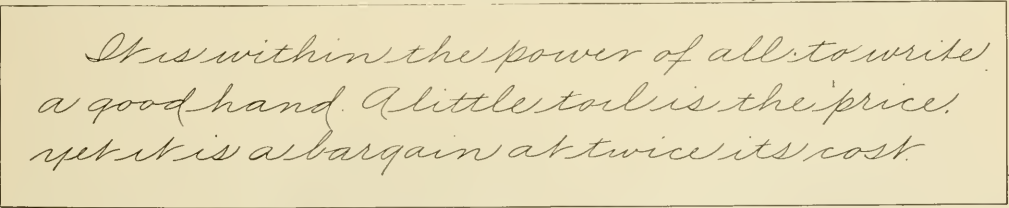 It is within the power of all to write
a good hand. A little toil is the price,
yet it is a bargain at twice its cost.